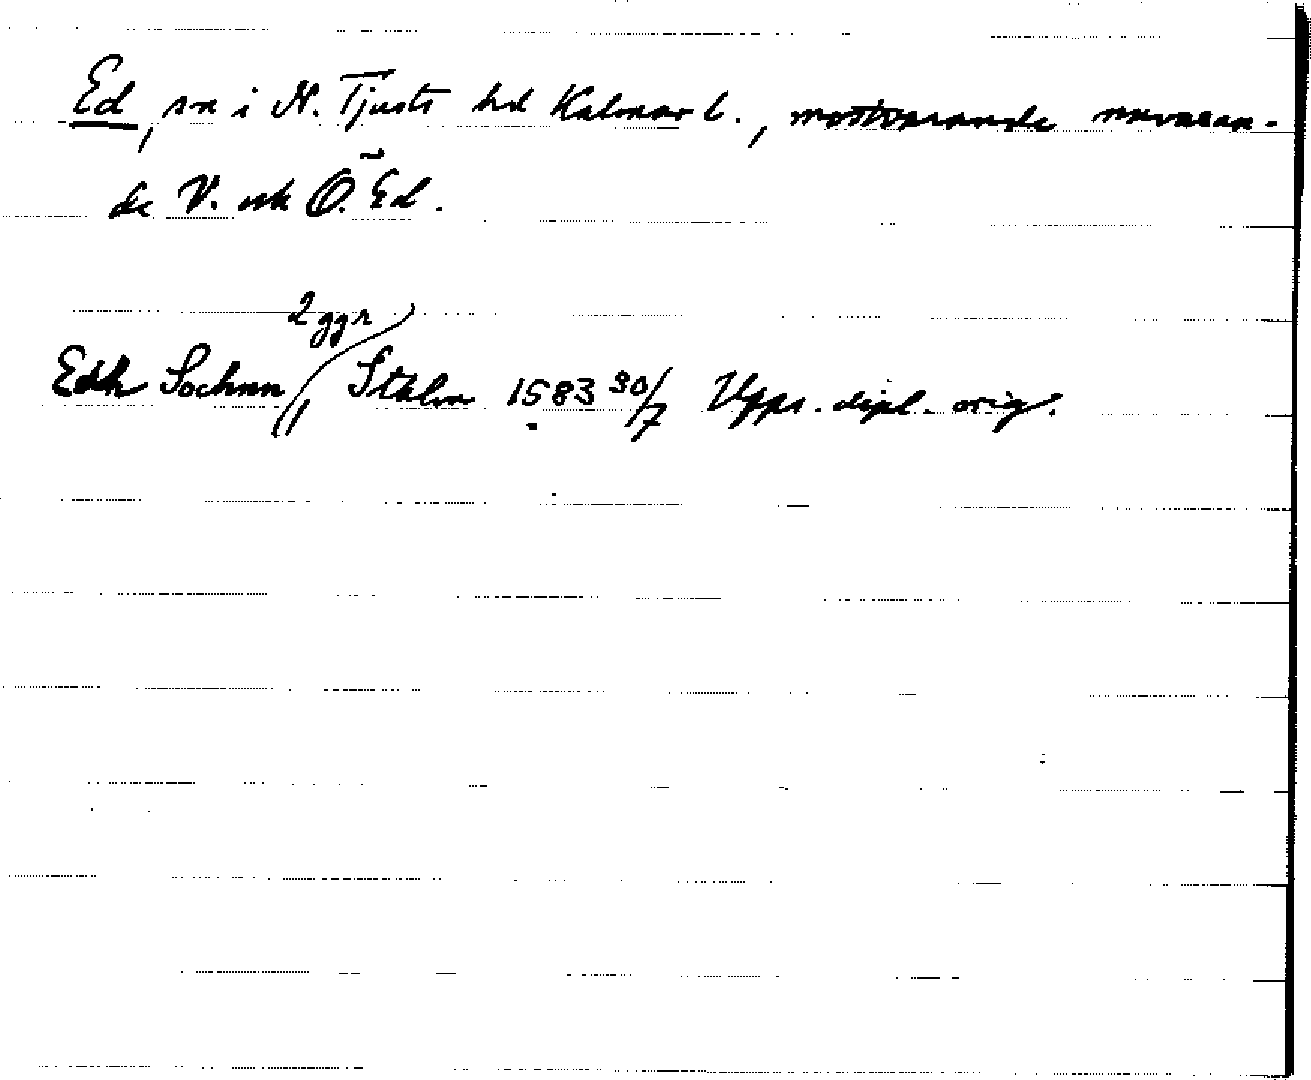 Ed, sn i N. Tjusts hd Kalmar l., motsvarande nuvaran-
de V. och Ö. Ed.
2 ggr
Edh Sochnn, Sthlm 1583 30/7 Upps. dipl. orig.